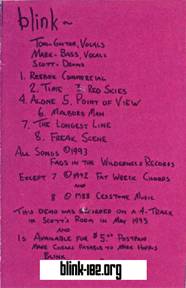 blink~
Tom-Guitar, Vocals
Mark-Bass, Vocals
Scott-Drums
1. Reebok Commercial
2. Time 3. Red Skies
4. Alone 5. Point of View
6. Marlboro Man
7. The Longest Line
8. Freak Scene
All Songs ©1993
Fags in the Wilderness Records
Except 7 ©1992 Fat Wreck Chords
and
8 ©1988 Cesstone Music
This demo was recorded on a 4-Track
in Scott's Room in May 1993
and
Is Available for $5.00 Postpaid
Make Checks Payable to Mark Hoppus
Blink
blink-182.org